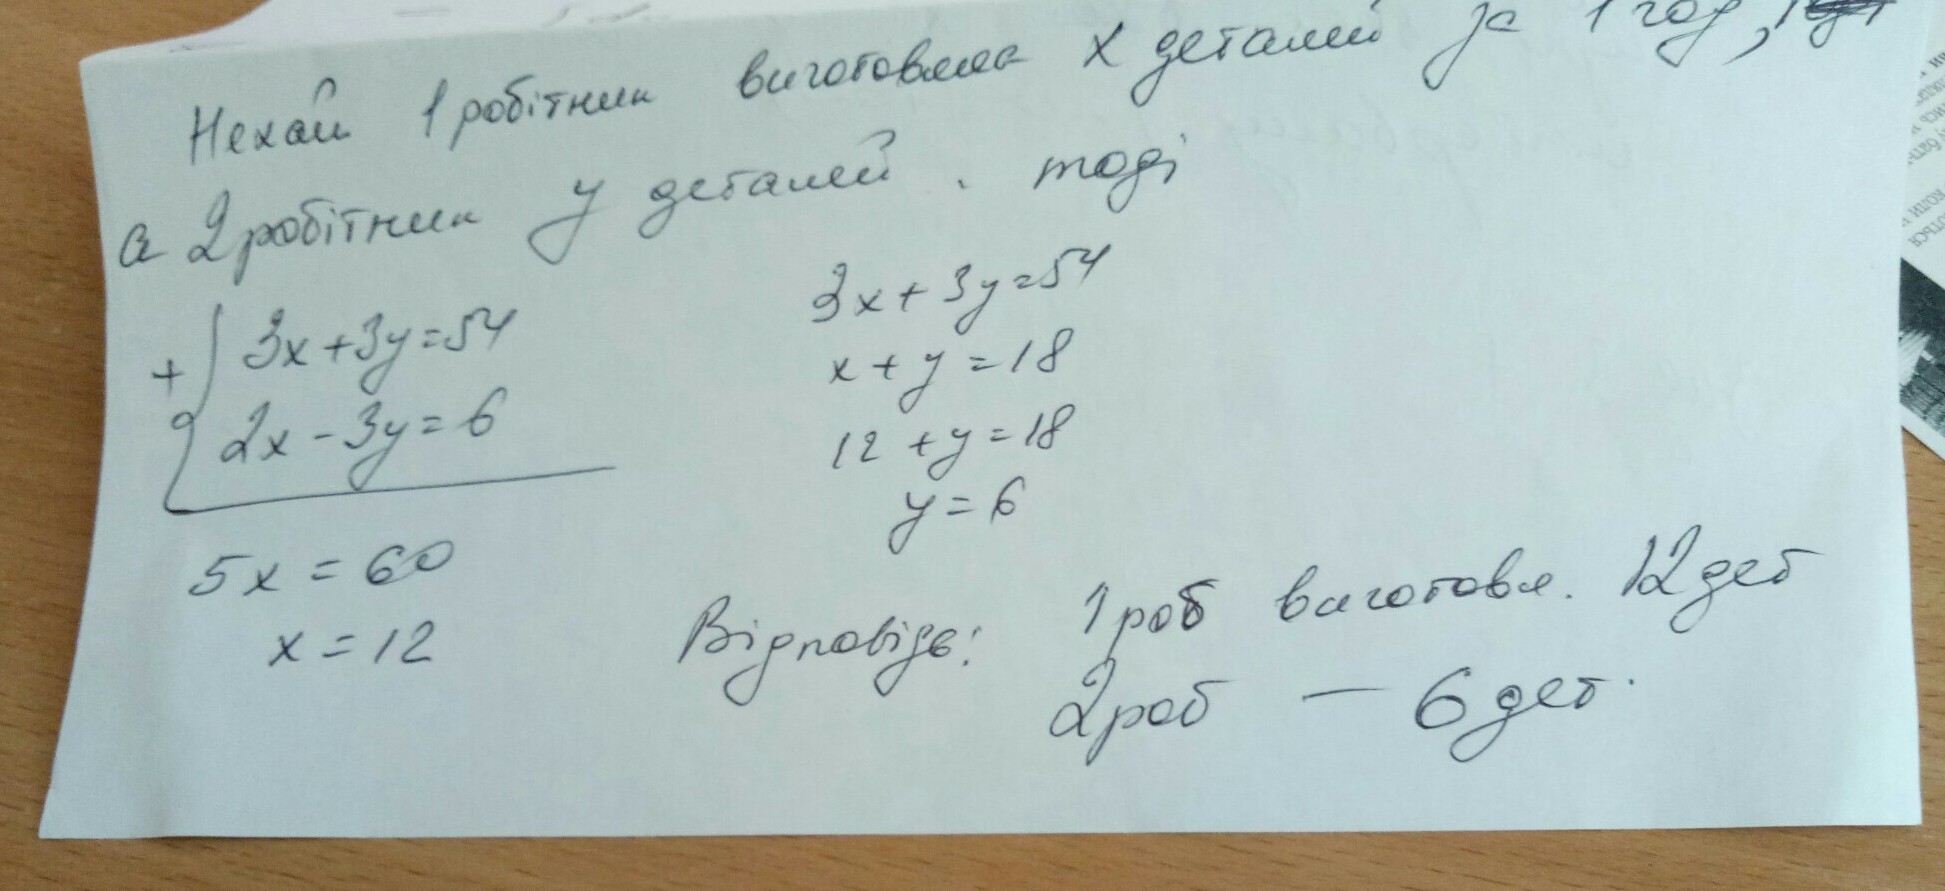 Нехай 1 робітник виготовляє x деталей за 1 год,
а 2 робітник y деталей. тоді
+ { 3x+3y=54
2x-3y=6
5x=60
x=12
3x+3y=54
x+y=18
12+y=18
y=6
Відповідь: 1 роб виготовл. 12 дет
2 роб — 6 дет.